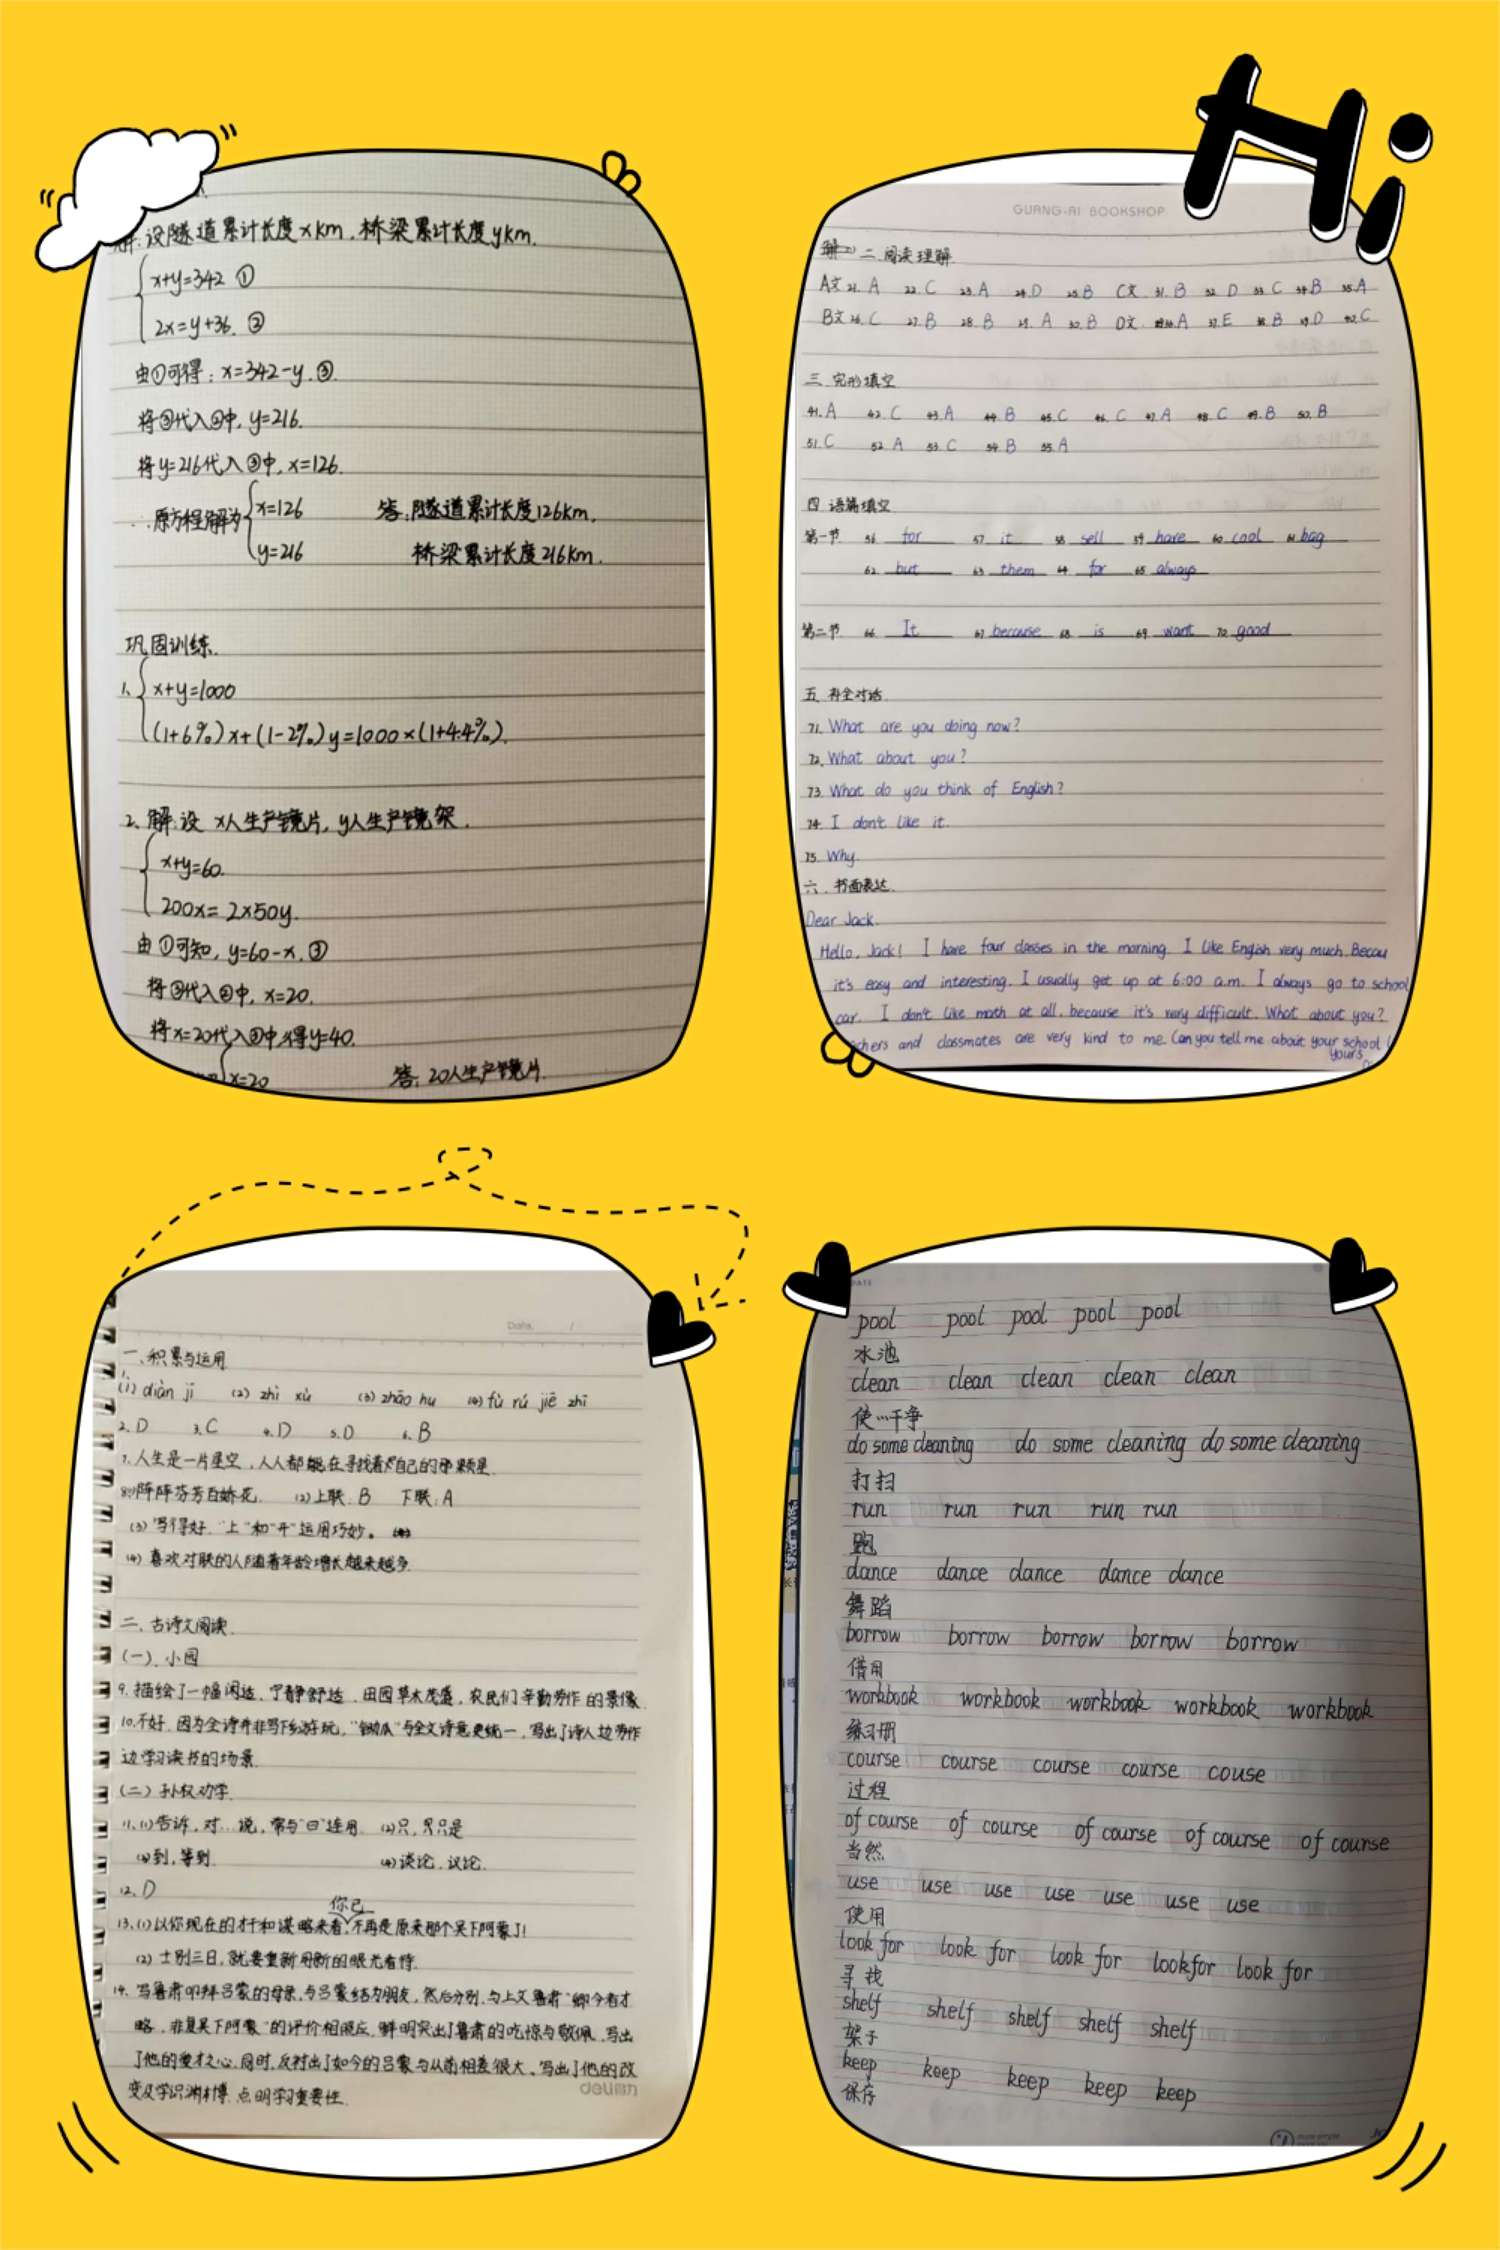 Hi
解:设隧道累计长度xkm,桥梁累计长度ykm.
x+y=342 ①
2x=y+36. ②
由①可得:x=342-y.③
将③代入②中,y=216.
将y=216代入③中,x=126.
∴原方程解为 x=126
y=216
答:隧道累计长度126km,
桥梁累计长度216km.
巩固训练
1. x+y=1000
(1+6%)x+(1-2%)y=1000×(1+4.4%).
2.解:设 x人生产镜片,y人生产镜架.
x+y=60.
200x=2×50y.
由①可知,y=60-x.③
将③代入②中,x=20.
将x=20代入③中,得y=40.
x=20
答:20人生产镜片.
GUANG-AI BOOKSHOP
二.阅读理解
A文 21. A 22. C 23. A 24. D 25. B C文. 31. B 32. D 33. C 34. B 35. A
B文 26. C 27. B 28. B 29. A 30. B D文. 36. A 37. E 38. B 39. D 40. C
三.完形填空
41. A 42. C 43. A 44. B 45. C 46. C 47. A 48. C 49. B 50. B
51. C 52. A 53. C 54. B 55. A
四 语篇填空
第一节 56 for 57 it 58 sell 59 have 60 cool 61 bag
62. but 63 them 64 for 65 always
第二节 66 It 67 because 68 is 69 want 70 good
五.补全对话
71. What are you doing now?
72. What about you?
73. What do you think of English?
74. I don't like it.
75. Why.
六.书面表达.
Dear Jack.
Hello, Jack! I have four classes in the morning. I like English very much. Becau
it's easy and interesting. I usually get up at 6:00 a.m. I always go to school
car. I don't like math at all, because it's very difficult. What about you?
chers and classmates are very kind to me. Can you tell me about your school
yours
Date. /
一、积累与运用
(1) diàn jī (2) zhì xù (3) zhāo hu (4) fù rú jiē zhī
2. D 3. C 4. D 5. D 6. B
7. 人生是一片星空,人人都能在寻找着自己的那颗星.
8(1)阵阵芬芳百娇花. (2)上联:B 下联:A
(3)写得好."上"和"开"运用巧妙。
(4)喜欢对联的人随着年龄增长越来越多.
二、古诗文阅读.
(一).小园
9.描绘了一幅闲适、宁静舒适、田园草木茂盛,农民们辛勤劳作的景像.
10.不好.因为全诗并非写下乡游玩,"锄瓜"与全文诗意更统一,写出了诗人边劳作
边学习读书的场景.
(二)孙权劝学.
11.(1)告诉,对…说,常与"曰"连用. (2)只,只是
(3)到,等到. (4)谈论.议论.
12. D
你已
13.(1)以你现在的才干和谋略来看,不再是原来那个吴下阿蒙了!
(2)士别三日,就要重新用新的眼光看待.
14.写鲁肃叩拜吕蒙的母亲,与吕蒙结为朋友,然后分别,与上文鲁肃"卿今者才
略,非复吴下阿蒙"的评价相照应.鲜明突出了鲁肃的吃惊与敬佩.写出
了他的爱才之心.同时,反衬出了如今的吕蒙与从前相差很大.写出了他的改
变及学识渊博.点明学习重要性.
deli
DATE
pool pool pool pool pool
水池
clean clean clean clean clean
使…干净
do some cleaning do some cleaning do some cleaning
打扫
run run run run run
跑
dance dance dance dance dance
舞蹈
borrow borrow borrow borrow borrow
借用
workbook workbook workbook workbook workbook
练习册
course course course course couse
过程
of course of course of course of course of course
当然
use use use use use use use
使用
look for look for look for lookfor look for
寻找
shelf shelf shelf shelf shelf
架子
keep keep keep keep keep
保存